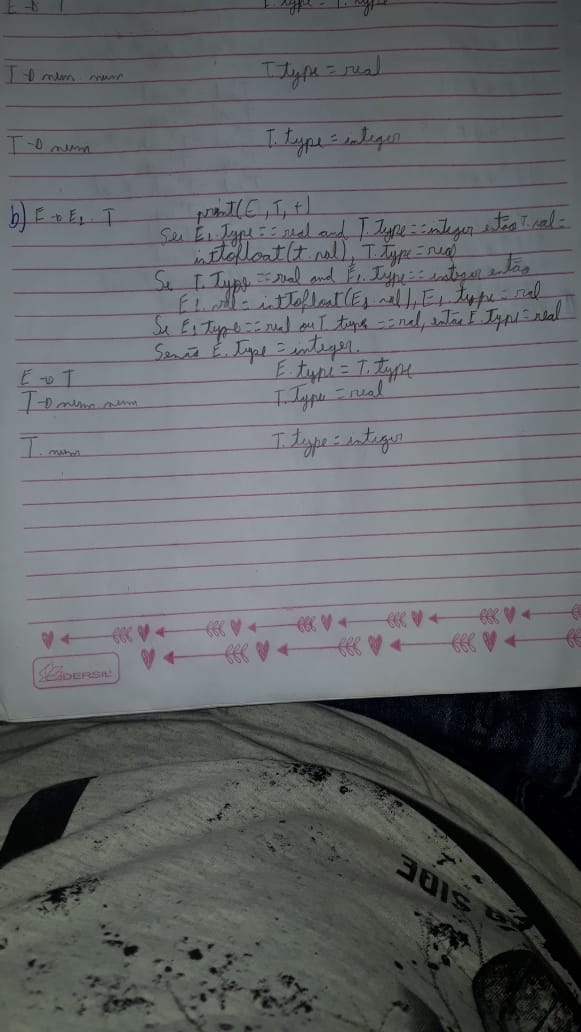 E → T E. type = T. type
T → num num T.type = real
T → num T. type = integer
b) E → E₁ . T print(E, T, +)
Se E₁.Type == real and T.Type == integer então T.val =
inttofloat(t.val), T.type = real
Se T.Type == real and E₁.type == integer então
E1.val = intTofloat(E₁ val), E₁ type = real
Se E₁ type == real ou T type == real, então E.Type = real
Senão E.Type = integer.
E → T E.type = T.type
T → num num T.Type = real
T. num T.type = integer
DERSIL
SIDE